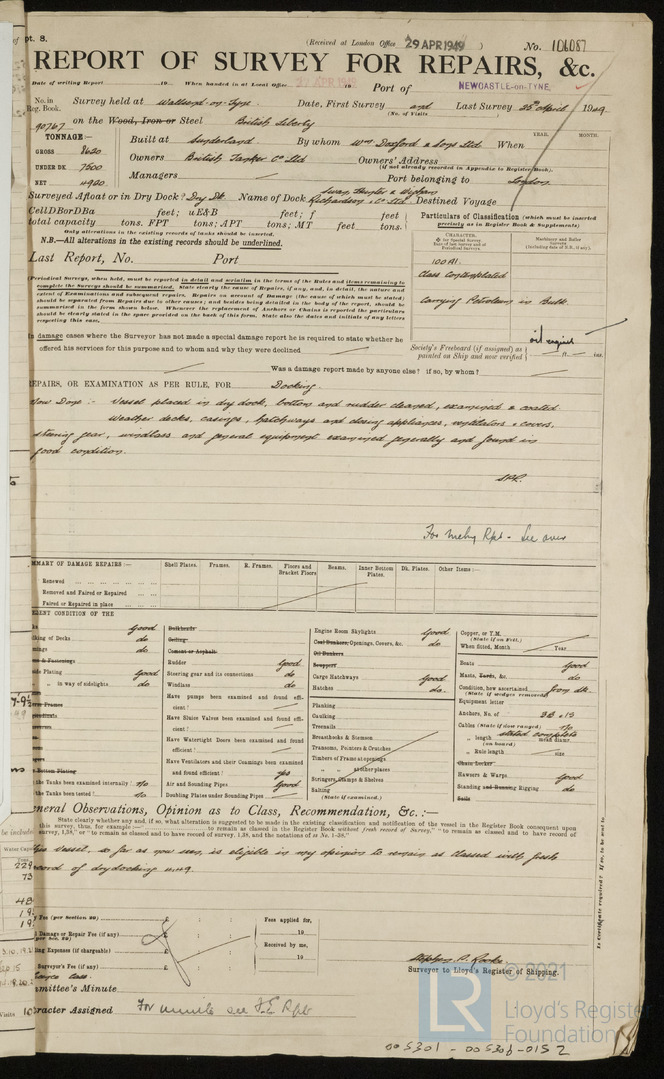 pt. 8.
(Received at London Office 29 APR 1949 )
No. 106087
REPORT OF SURVEY FOR REPAIRS, &c.
Date of writing Report 19 When handed in at Local Office 19 Port of NEWCASTLE-ON-TYNE
No. in Reg. Book. Survey held at Wallsend-on-Tyne Date, First Survey and Last Survey 25th April 1949
(No. of Visits
90767 on the Wood, Iron or Steel British Liberty
TONNAGE:—
GROSS 8620
UNDER DK 7500
NET 4920
Built at Sunderland By whom Wm Doxford & Sons Ltd When
YEAR. MONTH.
Owners British Tanker Co Ltd Owners' Address
(if not already recorded in Appendix to Register Book).
Managers Port belonging to London
Surveyed Afloat or in Dry Dock? Dry Dk Name of Dock Swan, Hunter & Wigham Richardson & Co Ltd. Destined Voyage
CellDBorDBa feet; uE&B feet; f feet
total capacity tons. FPT tons; APT tons; MT feet tons.
Only alterations in the existing records of tanks should be inserted.
N.B.—All alterations in the existing records should be underlined.
Last Report, No. Port
Particulars of Classification (which must be inserted precisely as in Register Book & Supplements)
CHARACTER.
100A1.
Class Contemplated
Carrying Petroleum in Bulk.
oil engines
Society's Freeboard (if assigned) as painted on Ship and now verified ft. ins.
(Periodical Surveys, when held, must be reported in detail and seriatim in the terms of the Rules and items remaining to complete the Surveys should be summarised. State clearly the cause of Repairs, if any, and, in detail, the nature and extent of Examinations and subsequent repairs. Repairs on account of Damage (the cause of which must be stated) should be separated from Repairs due to other causes; and besides being detailed in the body of the report, should be summarised in the form shown below. Whenever the replacement of Anchors or Chains is reported the particulars should be clearly stated in the space provided on the back of this form. State also the dates and initials of any letters respecting this case.
In damage cases where the Surveyor has not made a special damage report he is required to state whether he
offered his services for this purpose and to whom and why they were declined
Was a damage report made by anyone else? if so, by whom?
REPAIRS, OR EXAMINATION AS PER RULE, FOR Docking.
Now Done :- Vessel placed in dry dock, bottom and rudder cleaned, examined & coated
Weather decks, casings, hatchways and closing appliances, ventilators & covers,
steering gear, windlass and general equipment examined generally and found in
good condition.
SPR.
For Mchy Rpt - See over
SUMMARY OF DAMAGE REPAIRS:—
Shell Plates. Frames. R. Frames. Floors and Bracket Floors Beams. Inner Bottom Plates. Dk. Plates. Other Items:—
Renewed
Removed and Faired or Repaired
Faired or Repaired in place
PRESENT CONDITION OF THE
Good
king of Decks do
ings do
& Fastenings
ide Plating Good
„ in way of sidelights do
Frames
Bottom Plating
the Tanks been examined internally? No
the Tanks been tested? No
Bulkheads
Ceiling
Cement or Asphalt
Rudder Good
Steering gear and its connections do
Windlass do
Have pumps been examined and found efficient?
Have Sluice Valves been examined and found efficient?
Have Watertight Doors been examined and found efficient?
Have Ventilators and their Coamings been examined and found efficient? Yes
Air and Sounding Pipes Good
Doubling Plates under Sounding Pipes
Engine Room Skylights Good
Coal Bunkers, Openings, Covers, &c. do
Oil Bunkers
Scuppers
Cargo Hatchways Good
Hatches do.
Planking
Caulking
Treenails
Breasthooks & Stemson
Transoms, Pointers & Crutches
Timbers of Frame at openings
„ at other places
Stringers, Clamps & Shelves
Salting
(State if examined.)
Copper, or Y.M.
(State if on Felt.)
When fitted, Month Year
Boats Good
Masts, Yards, &c. do
Condition, how ascertained from dk.
(State if wedges removed)
Equipment letter
Anchors, No. of 3B. 1S
Cables (State if now ranged) No
„ length stated complete mean diamr.
(on board)
„ Rule length size
Chain Locker
Hawsers & Warps Good
Standing and Running Rigging do
Sails
General Observations, Opinion as to Class, Recommendation, &c. :—
State clearly whether any and, if so, what alteration is suggested to be made in the existing classification and notification of the vessel in the Register Book consequent upon
this survey, thus, for example:— to remain as classed in the Register Book without fresh record of Survey," "to remain as classed and to have record of
survey, 1,38," or "to remain as classed and to have record of survey, 1,38, and the notations of ss No. 1-38."
This vessel, so far as now seen, is eligible in my opinion to remain as classed with fresh
record of drydocking 4.49.
Fee (per Section 29) £ : :
Damage or Repair Fee (if any) £ : :
ling Expenses (if chargeable) £ : :
Surveyor's Fee (if any) £ : :
Fees applied for, 19
Received by me, 19
Surveyor to Lloyd's Register of Shipping.
mmittee's Minute
racter Assigned For minute see F.E. Rpt
Is Certificate required? If so, to be sent to
© 2021
LR Lloyd's Register Foundation
005301 - 005306 - 0152